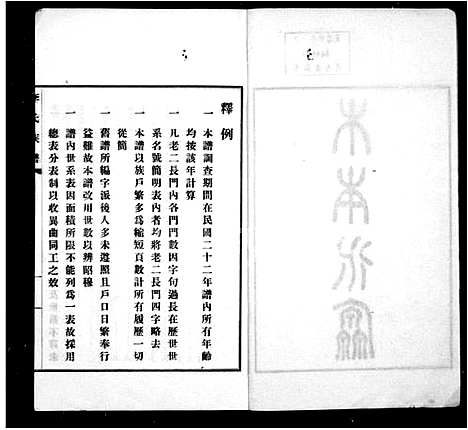 木本水源
釋例
一 本譜調查期間在民國二十二年譜內所有年齡
均按該年計算
一 凡老二長門內各門門數因字句過長在歷世世
系名號簡明表內者均將老二長門四字略去
一 本譜以族戶繁多爲縮短頁數計所有履歷一切
從簡
一 舊譜所編字派後人多未遵照且戶口日繁奉行
益難故本譜改用世數以辨昭穆
一 譜內世系表因面積所限不能列爲一表故採用
總表分表制以收異曲同工之效
氏族譜